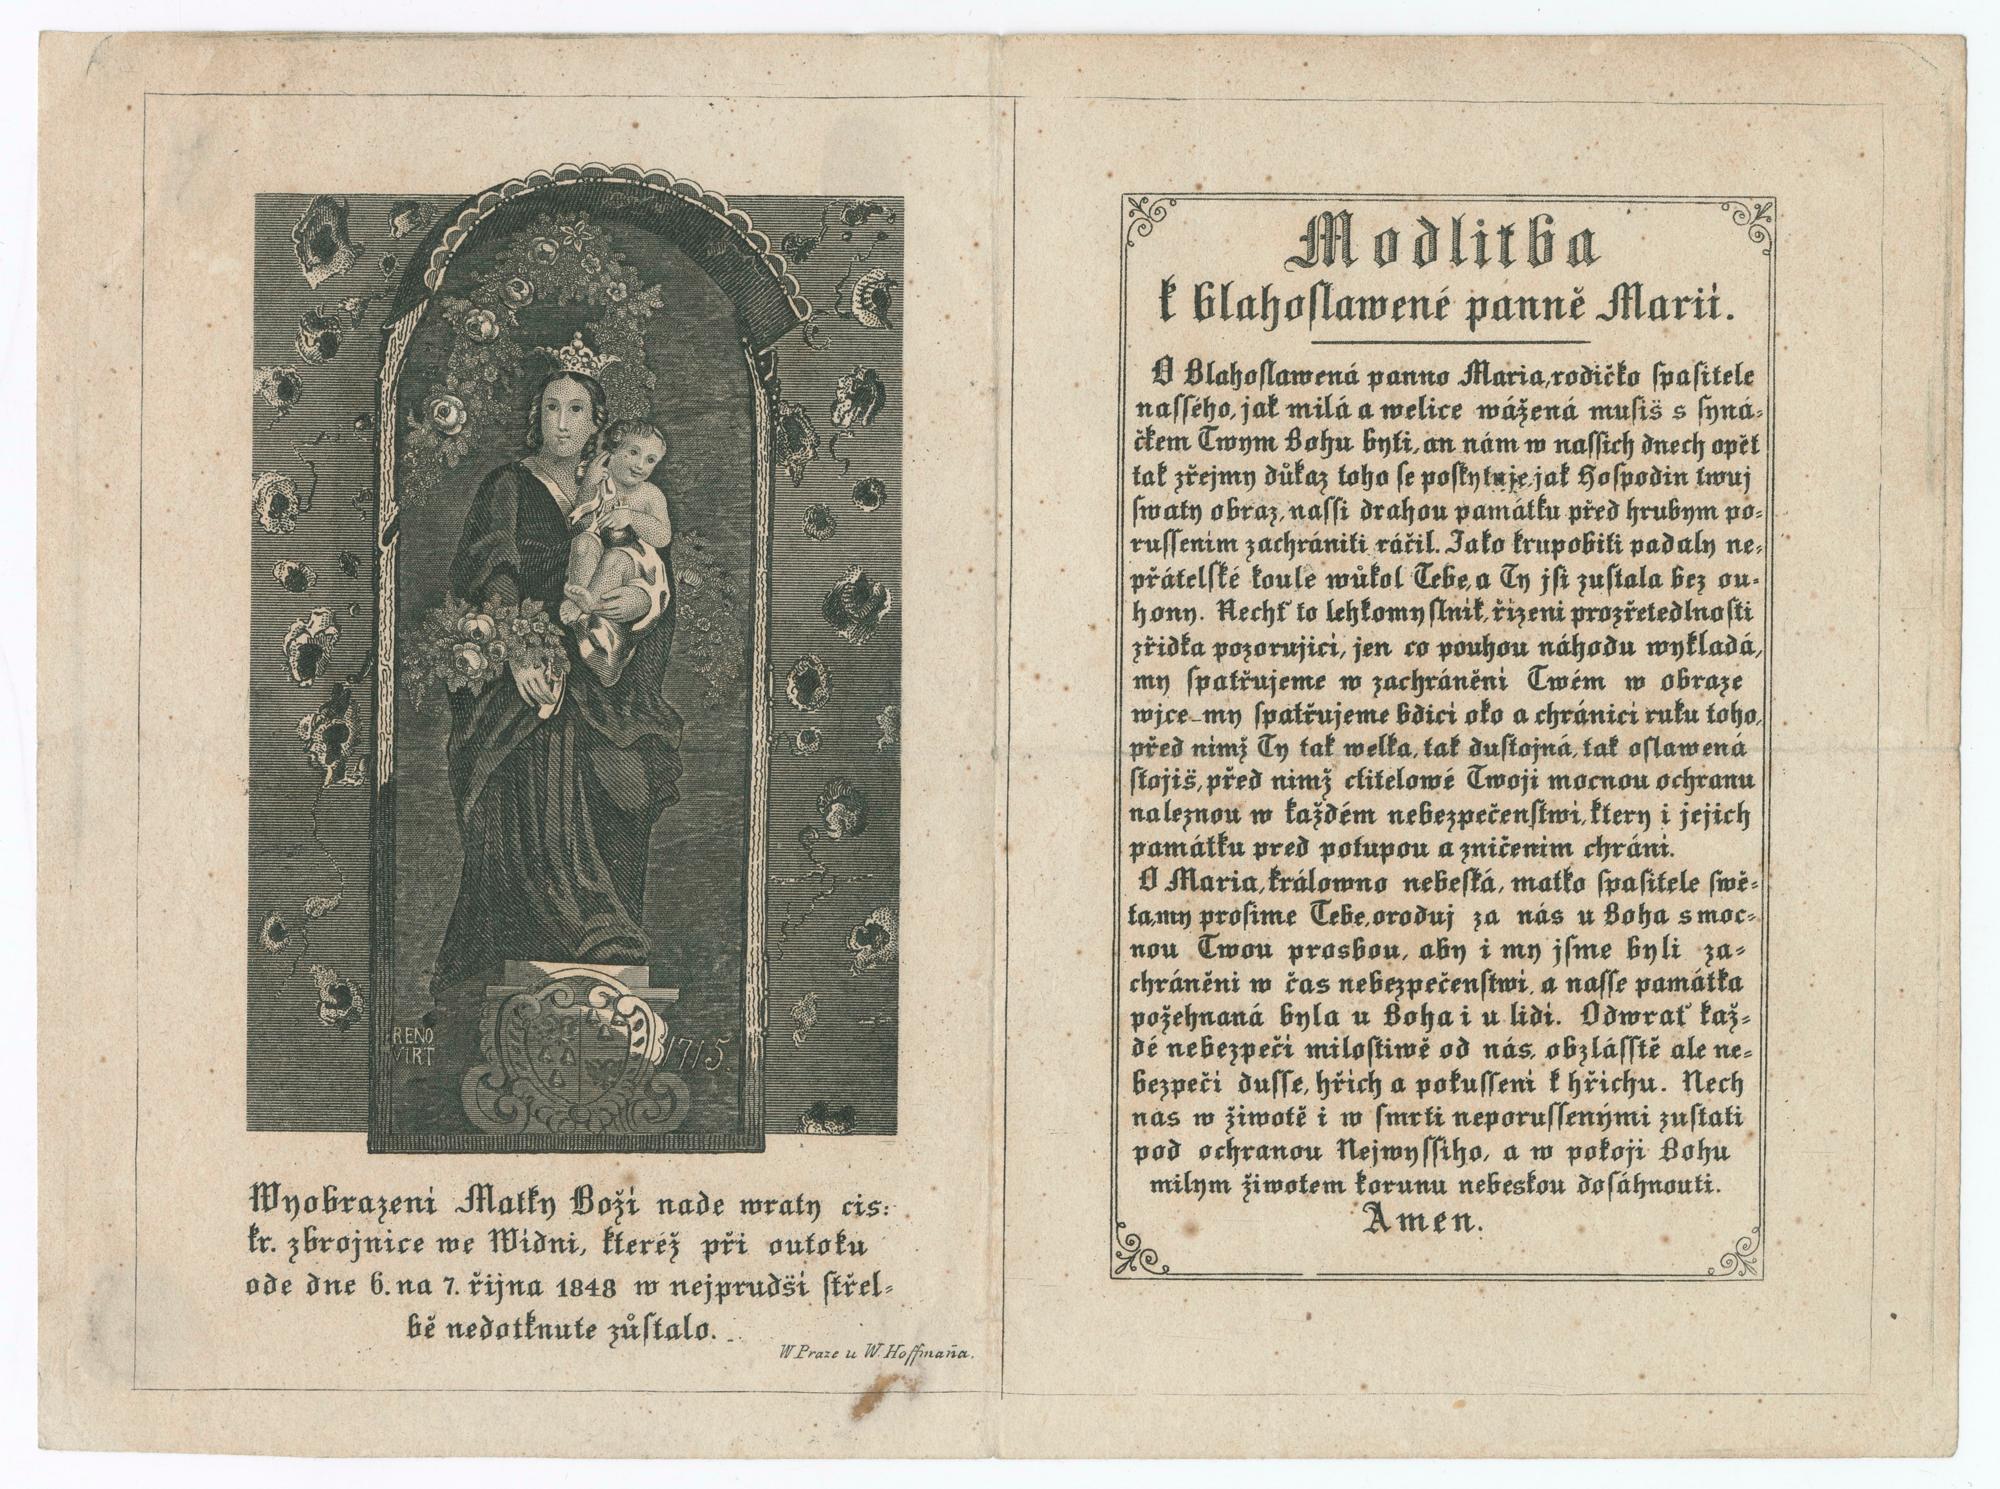 RENO
VIRT
1715.
Wyobrazení Matky Boží nade wraty cis:
kr. zbrojnice we Widni, kteréž při outoku
ode dne 6. na 7. řijna 1848 w nejprudší střel-
bě nedotknute zůstalo.
W Praze u W. Hoffmaña.
Modlitba
k blahoslawené panně Marii.
O Blahoslawená panno Maria, rodičko spasitele
nasseho, jak milá a welice wážená musiš s syná-
čkem Twym Bohu byti, an nám w nassich dnech opět
tak zřejmy důkaz toho se poskytuje, jak Hospodin twuj
swaty obraz, nassi drahou památku před hrubym po-
russenim zachrániti ráčil. Jako krupobiti padaly ne-
přátelské koule wůkol Tebe, a Ty jsi zustala bez ou-
hony. Nechť to lehkomyslnik, řizeni prozřetedlnosti
zřidka pozorujici, jen co pouhou náhodu wykladá,
my spatřujeme w zachráněni Twém w obraze
wjce_my spatřujeme bdici oko a chránici ruku toho,
před nimž Ty tak welka, tak dustojná, tak oslawená
stojiš, před nimž ctitelowé Twoji mocnou ochranu
naleznou w každém nebezpečenstwi, ktery i jejich
památku pred potupou a zničenim chráni.
O Maria, králowno nebeská, matko spasitele swě-
ta, my prosime Tebe, oroduj za nás u Boha s moc-
nou Twou prosbou, aby i my jsme byli za-
chráněni w čas nebezpečenstwi, a nasse památka
požehnaná byla u Boha i u lidi. Odwrať kaž-
dé nebezpeči milostiwě od nás, obzlásstě ale ne-
bezpeči dusse, hřich a pokusseni k hřichu. Nech
nás w žiwotě i w smrti neporussenými zustati
pod ochranou Nejwyssiho, a w pokoji Bohu
milym žiwotem korunu nebeskou dosáhnouti.
Amen.